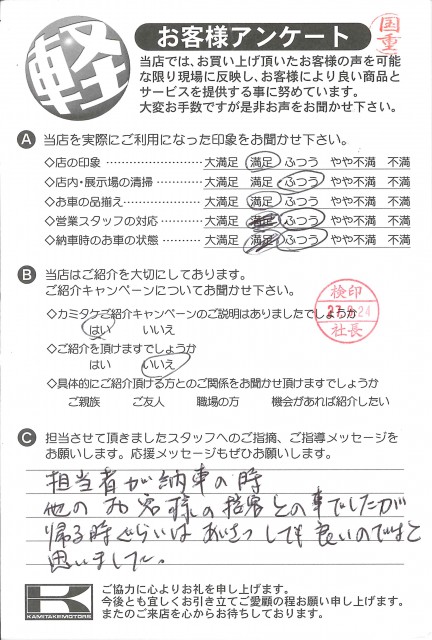 軽
お客様アンケート
国重
当店では、お買い上げ頂いたお客様の声を可能
な限り現場に反映し、お客様により良い商品と
サービスを提供する事に努めています。
大変お手数ですが是非お声をお聞かせ下さい。
A 当店を実際にご利用になった印象をお聞かせ下さい。
◇店の印象 ………………… 大満足 満足 ふつう やや不満 不満
◇店内・展示場の清掃 ………… 大満足 満足 ふつう やや不満 不満
◇お車の品揃え ……………… 大満足 満足 ふつう やや不満 不満
◇営業スタッフの対応 ………… 大満足 満足 ふつう やや不満 不満
◇納車時のお車の状態 ………… 大満足 満足 ふつう やや不満 不満
B 当店はご紹介を大切にしてあります。
ご紹介キャンペーンについてお聞かせ下さい。
◇カミタケご紹介キャンペーンのご説明はありましたでしょうか
はい いいえ
検印
社長
◇ご紹介を頂けますでしょうか
はい いいえ
◇具体的にご紹介頂ける方とのご関係をお聞かせ頂けますでしょうか
ご親族 ご友人 職場の方 機会があれば紹介したい
C 担当させて頂きましたスタッフへのご指摘、ご指導メッセージを
お願いします。応援メッセージもぜひお願いします。
担当者が納車の時
他のお客様の接客との事でしたが
帰る時ぐらいはあいさつしても良いのではと
思いました。
K
KAMITAKEMOTORS
ご協力に心よりお礼を申し上げます。
今後とも宜しくお引き立てご愛顧の程お願い申し上げます。
またのご来店を心からお待ちしております。